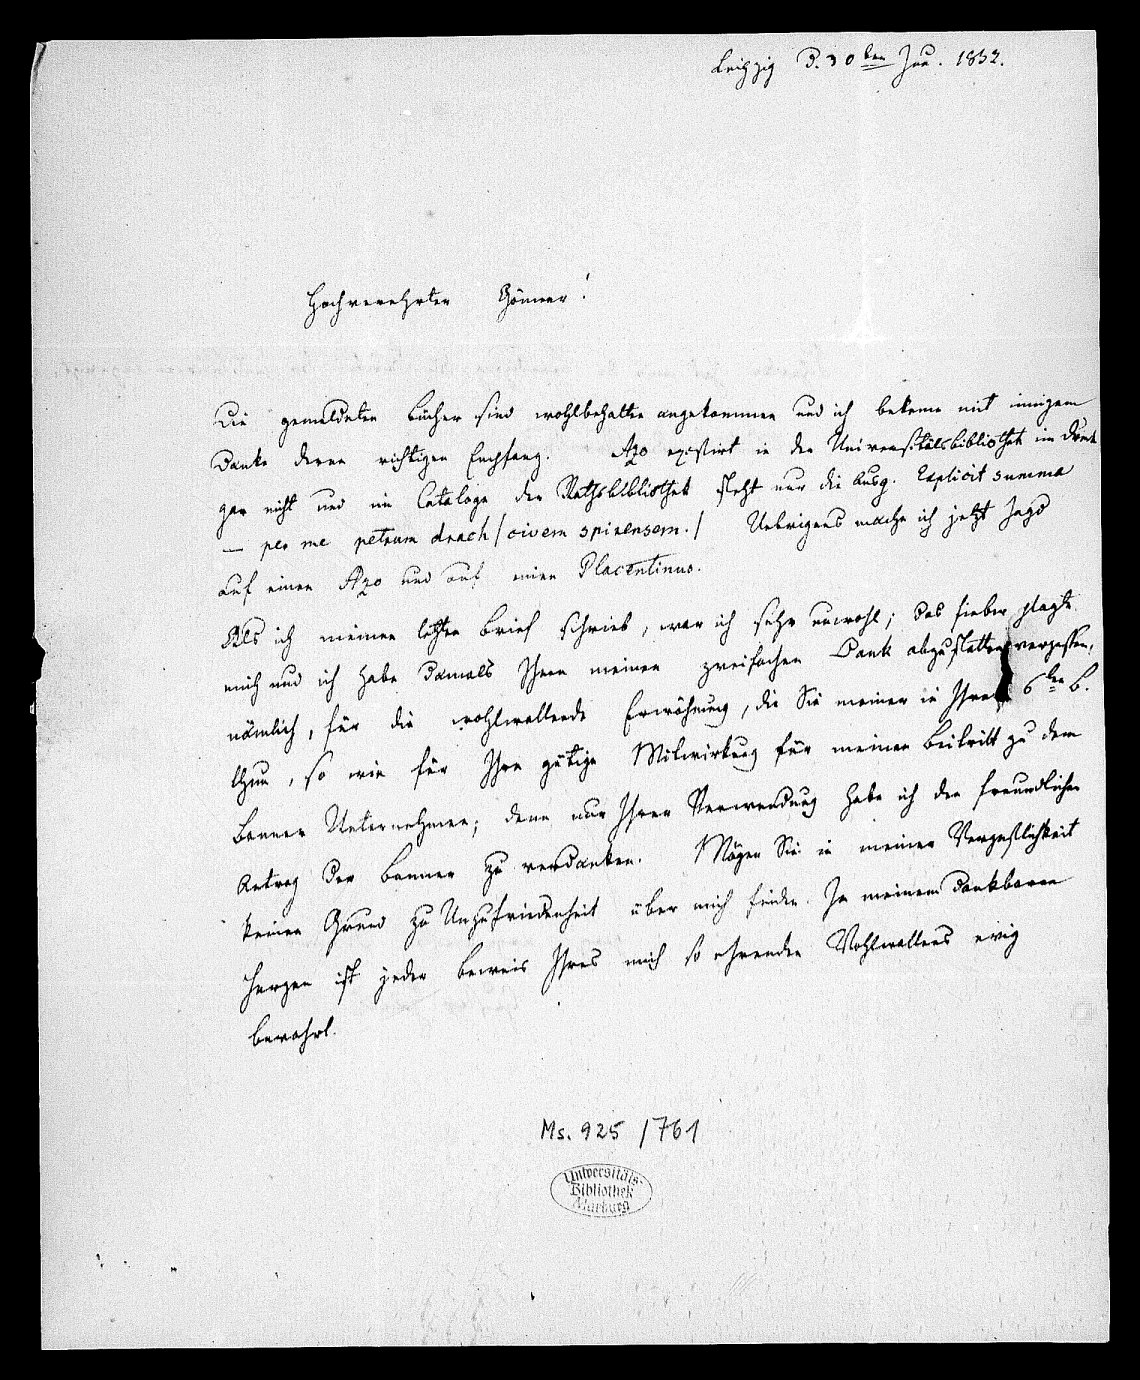 Leipzig d. 30ten Jun. 1832.
Hochverehrter Gönner!
Die gemeldeten Bücher sind wohlbehalten angekommen und ich bekenne mit innigem
Danke deren richtigen Empfang. Azo existirt in der Universitätsbibliothek im Druck
gar nicht und im Cataloge der Rathsbibliothek steht nur die Ausg. Explicit summa
— per me petrum drach / civem spirensem. / Uebrigens mache ich jetzt Jagd
auf einen Azo und auf einen Placentinus.
Als ich meinen letzten Brief schrieb, war ich sehr unwohl; das Fieber plagte
mich und ich habe damals Ihnen meinen zweifachen Dank abzustatten vergessen,
nämlich, für die wohlwollende Erwähnung, die Sie meiner in Ihrem 6ten B.
thun, so wie für Ihre gütige Mitwirkung für meinen Beitritt zu dem
Bonner Unternehmen; denn nur Ihrer Verwendung habe ich den freundlichen
Antrag der Bonner zu verdanken. Mögen Sie in meiner Vergeßlichkeit
keinen Grund zu Unzufriedenheit über mich finden. In meinem dankbaren
Herzen ist jeder Beweis Ihres mich so ehrenden Wohlwollens ewig
bewahrt.
Ms. 925 /761
Universitäts-
Bibliothek
Marburg